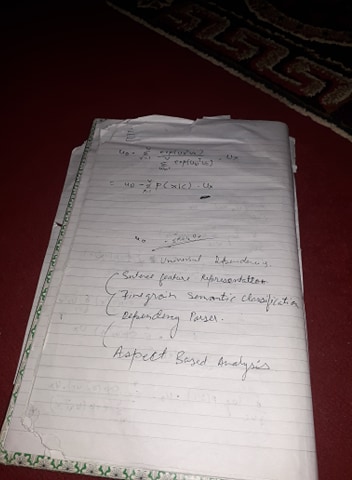 u₀ - Σ exp(u₀ᵀvₓ) / Σ exp(u₀ᵀvₓ) · Uₓ
= u₀ - Σ P(x|c) · Uₓ
Universal Dependencies
Subset feature Representation
Finegrain Semantic Classification
Dependency Parser.
Aspect Based Analysis